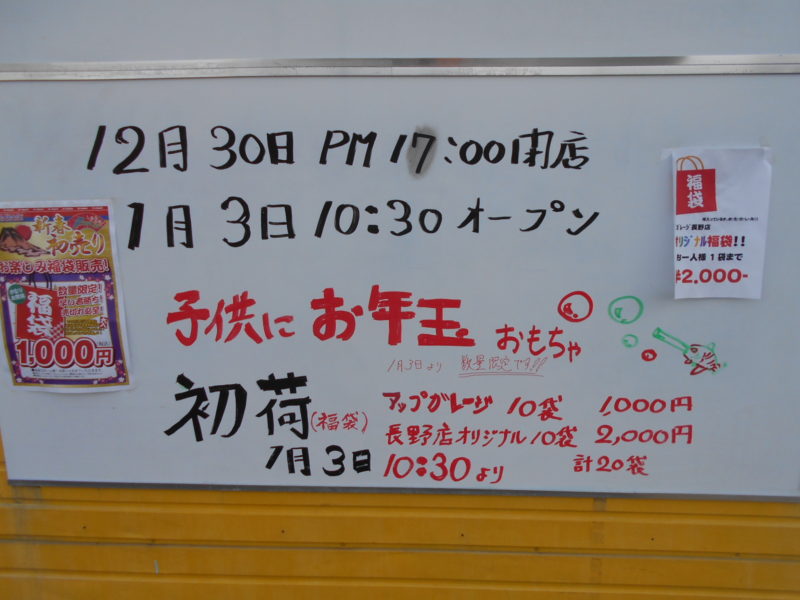 12月30日 PM 17:00閉店
1月3日 10:30オープン
子供に お年玉 おもちゃ
1月3日より 数量限定です!!
初荷(福袋)
アップガレージ 10袋 1,000円
長野店オリジナル10袋 2,000円
1月3日 10:30より 計20袋
新春
初売り
お楽しみ福袋販売!
福袋
数量限定!
早い者勝ち!
売切れ必至!
1,000円
福袋
長野店
オリジナル福袋!!
お一人様1袋まで
¥2,000-